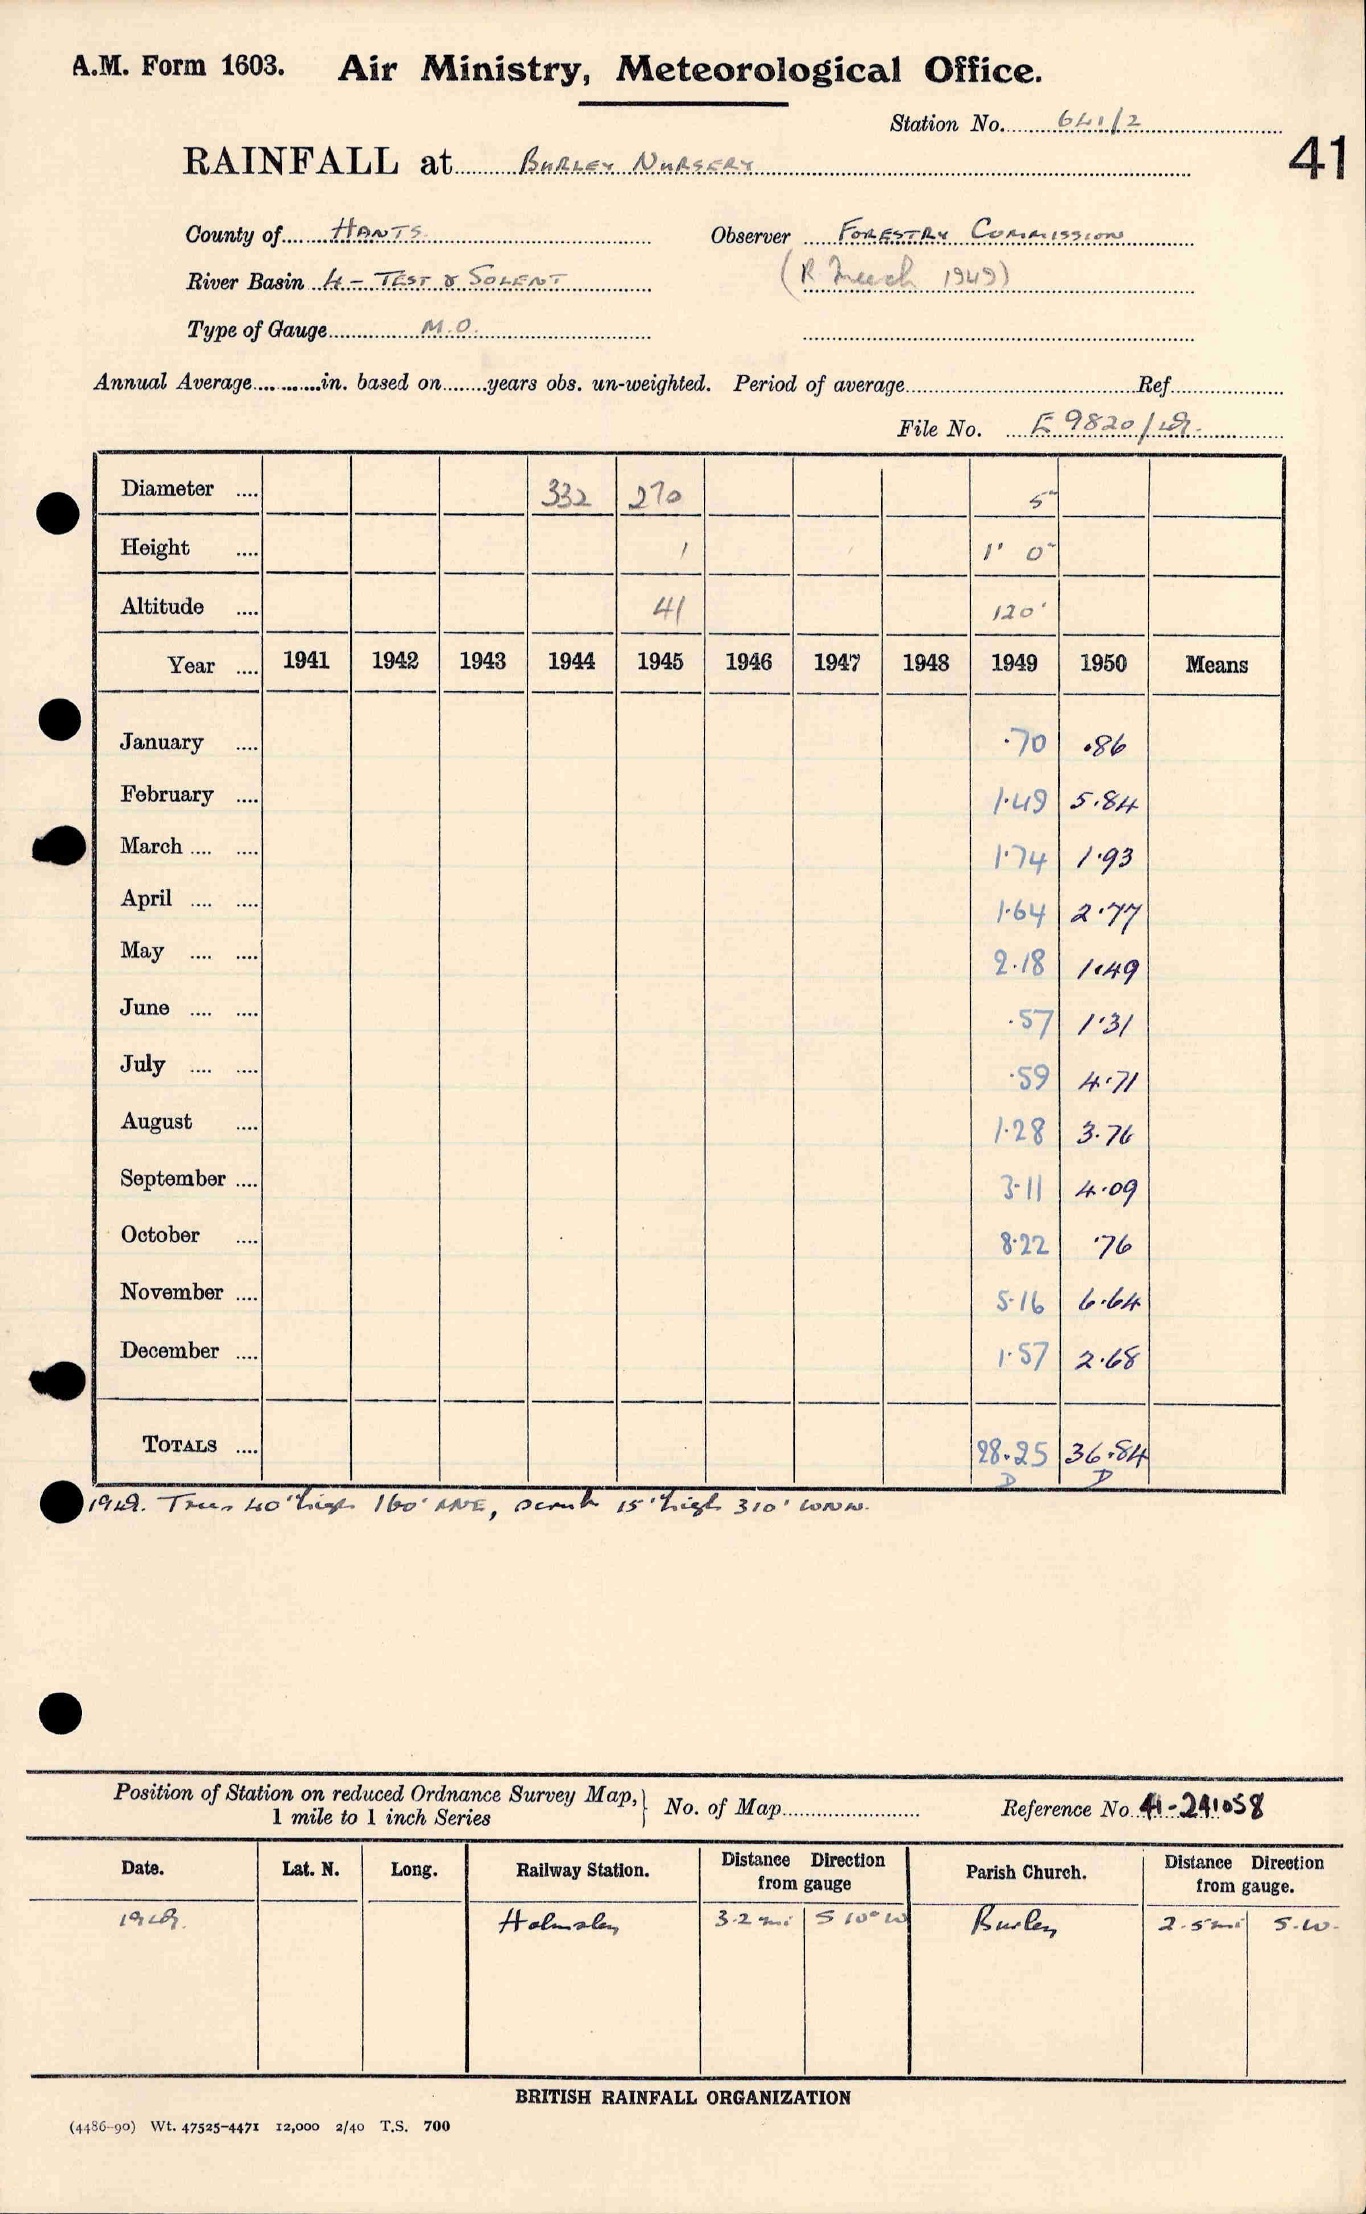 A.M. Form 1603. Air Ministry, Meteorological Office.
Station No. 641/2
41
RAINFALL at BURLEY NURSERY
County of HANTS. Observer FORESTRY COMMISSION
River Basin 4 - TEST & SOLENT (R. 1949)
Type of Gauge M.O.
Annual Average in. based on years obs. un-weighted. Period of average Ref
File No. E 9820/49.
Diameter 332 270 5"
Height 1 1' 0"
Altitude 41 120'
Year 1941 1942 1943 1944 1945 1946 1947 1948 1949 1950 Means
January .70 .86
February 1.49 5.84
March 1.74 1.93
April 1.64 2.77
May 2.18 1.49
June .57 1.31
July .59 4.71
August 1.28 3.76
September 3.11 4.09
October 8.22 .76
November 5.16 6.64
December 1.57 2.68
TOTALS 28.25 36.84
D D
1949. Trees 40' high 160' NNE, scrub 15' high 310' WNW.
Position of Station on reduced Ordnance Survey Map, 1 mile to 1 inch Series } No. of Map Reference No. 41-241058
Date. Lat. N. Long. Railway Station. Distance Direction from gauge Parish Church. Distance Direction from gauge.
1949. Holmsley 3.2 mi S 10° W Burley 2.5 mi S.W.
BRITISH RAINFALL ORGANIZATION
(4486-90) Wt. 47525-4471 12,000 2/40 T.S. 700